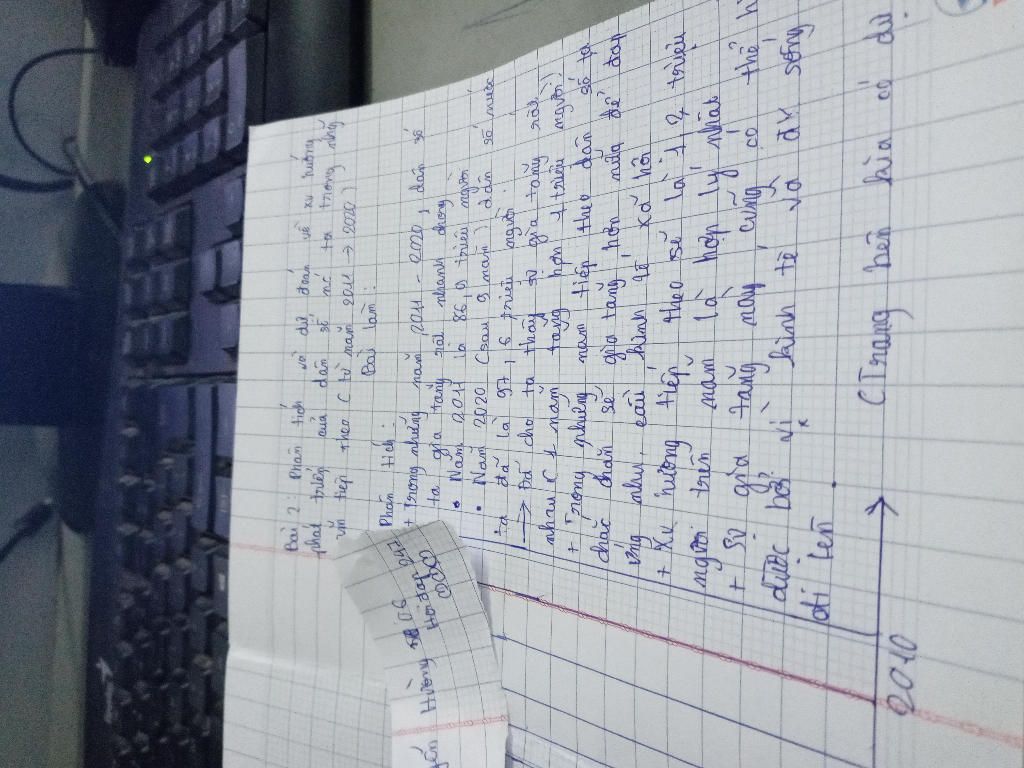 Bài 2: Phân tích và dự đoán về xu hướng
phát triển của dân số nc ta trong những
năm tiếp theo (từ năm 2011 → 2020)
Bài làm:
Phân tích:
+ Trong những năm 2011 - 2020, dân số
ta gia tăng rất nhanh chóng
• Năm 2011 là 86,9 triệu người
• Năm 2020 (sau 9 năm), dân số nước
ta đã là 97,6 triệu người.
→ Đã cho ta thấy sự gia tăng rất
nhanh (1 năm tăng hơn 1 triệu người)
+ Trong những năm tiếp theo dân số ta
chắc chắn sẽ gia tăng hơn nữa để đáp
ứng nhu cầu kinh tế xã hội
+ Xu hướng tiếp theo sẽ là 1→2 triệu
người trên năm là hợp lý nhất
+ Sự gia tăng này cũng có thể
được bởi vì kinh tế và đk sống
đi lên.
2010
(Trang bên kia có đủ.
Hường 06
Hỏi đáp 247